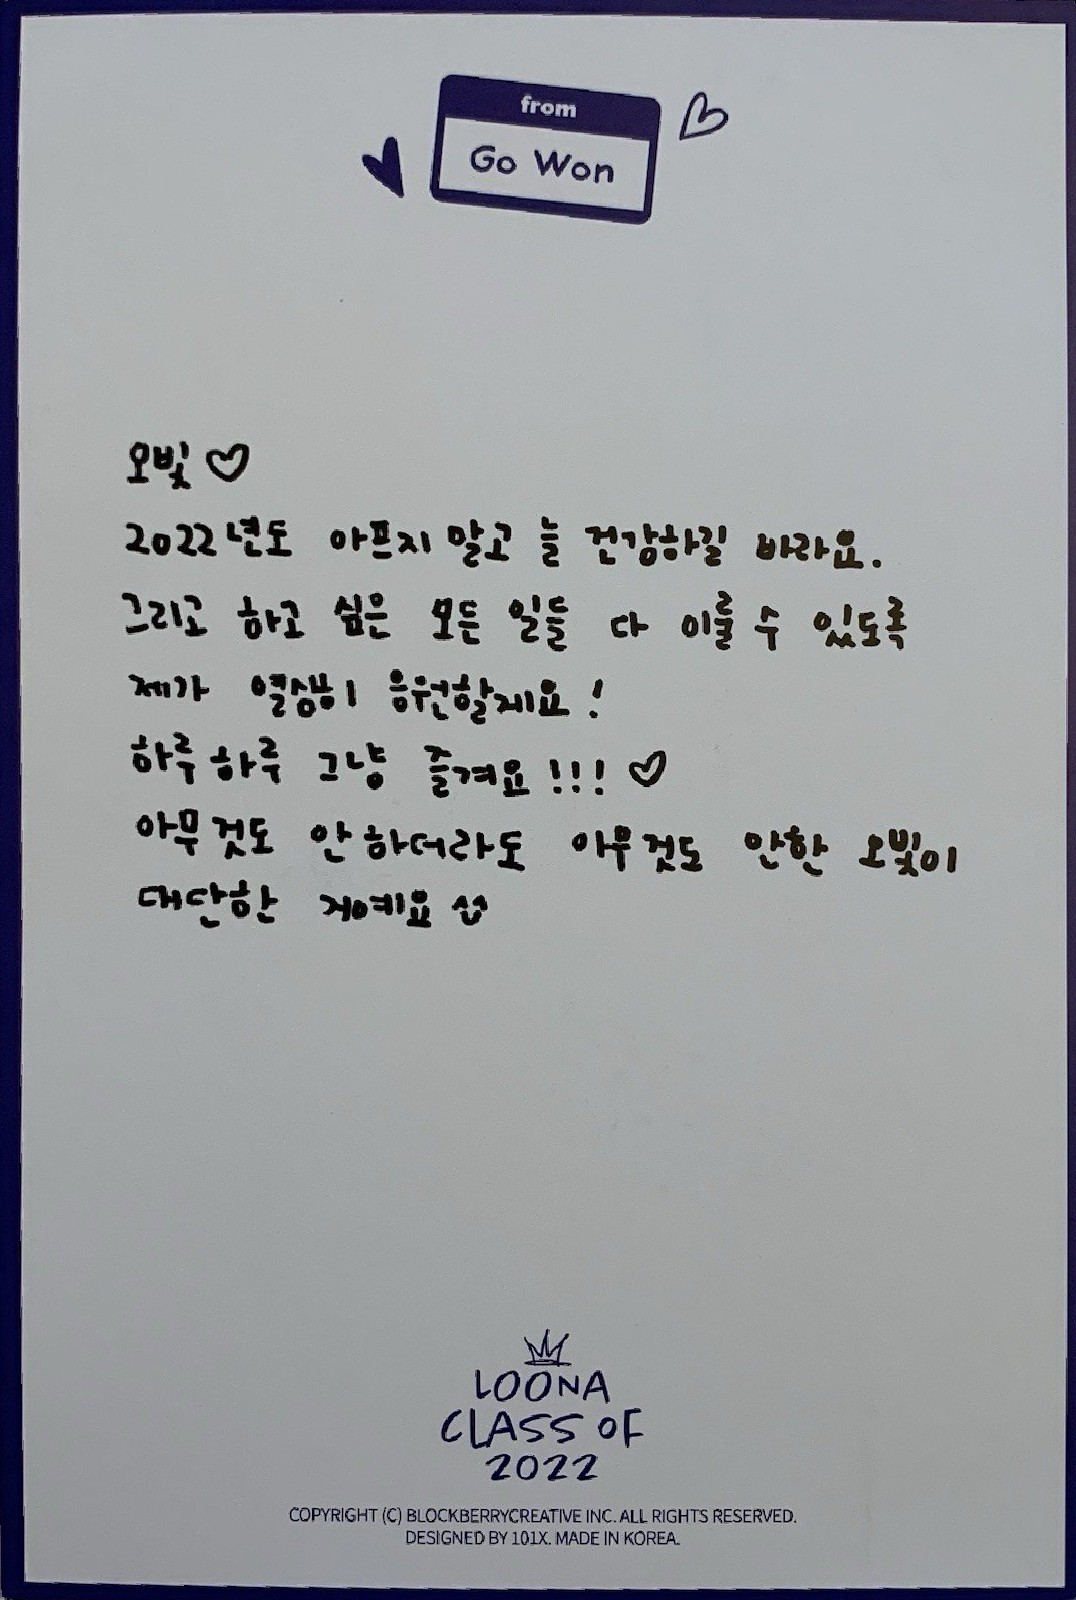 from
Go Won
오빛♡
2022년도 아프지 말고 늘 건강하길 바라요.
그리고 하고 싶은 모든 일들 다 이룰 수 있도록
제가 열심히 응원할게요!
하루하루 그냥 즐겨요!!! ♡
아무것도 안 하더라도 아무것도 안한 오빛이
대단한 거예요
LOONA
CLASS OF
2022
COPYRIGHT (C) BLOCKBERRYCREATIVE INC. ALL RIGHTS RESERVED.
DESIGNED BY 101X. MADE IN KOREA.